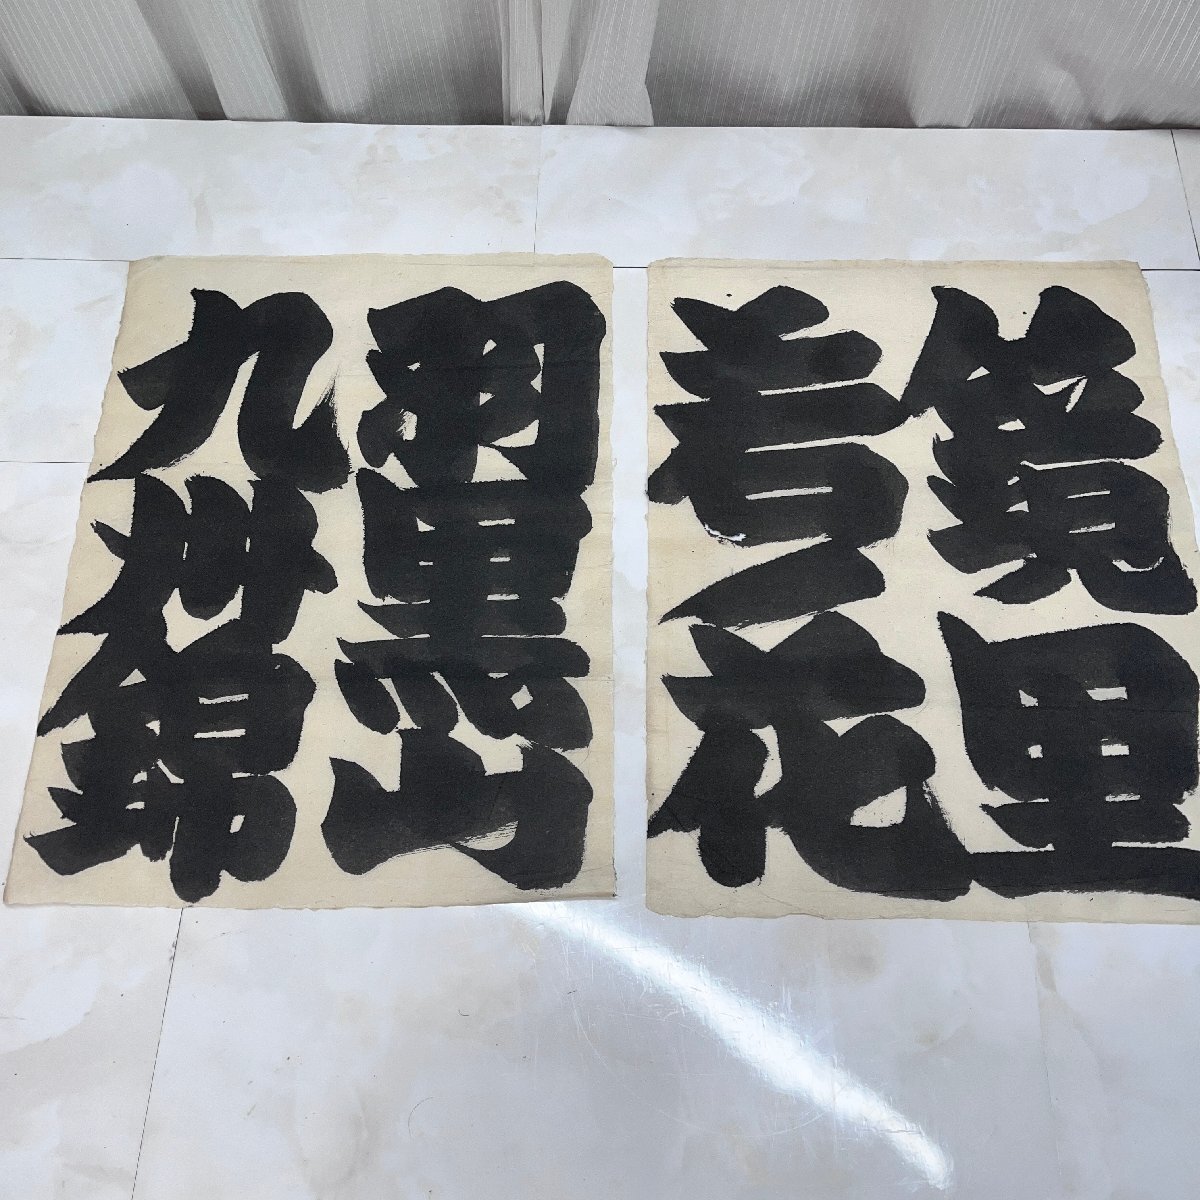 鏡里
若ノ花
羽黒山
九州錦